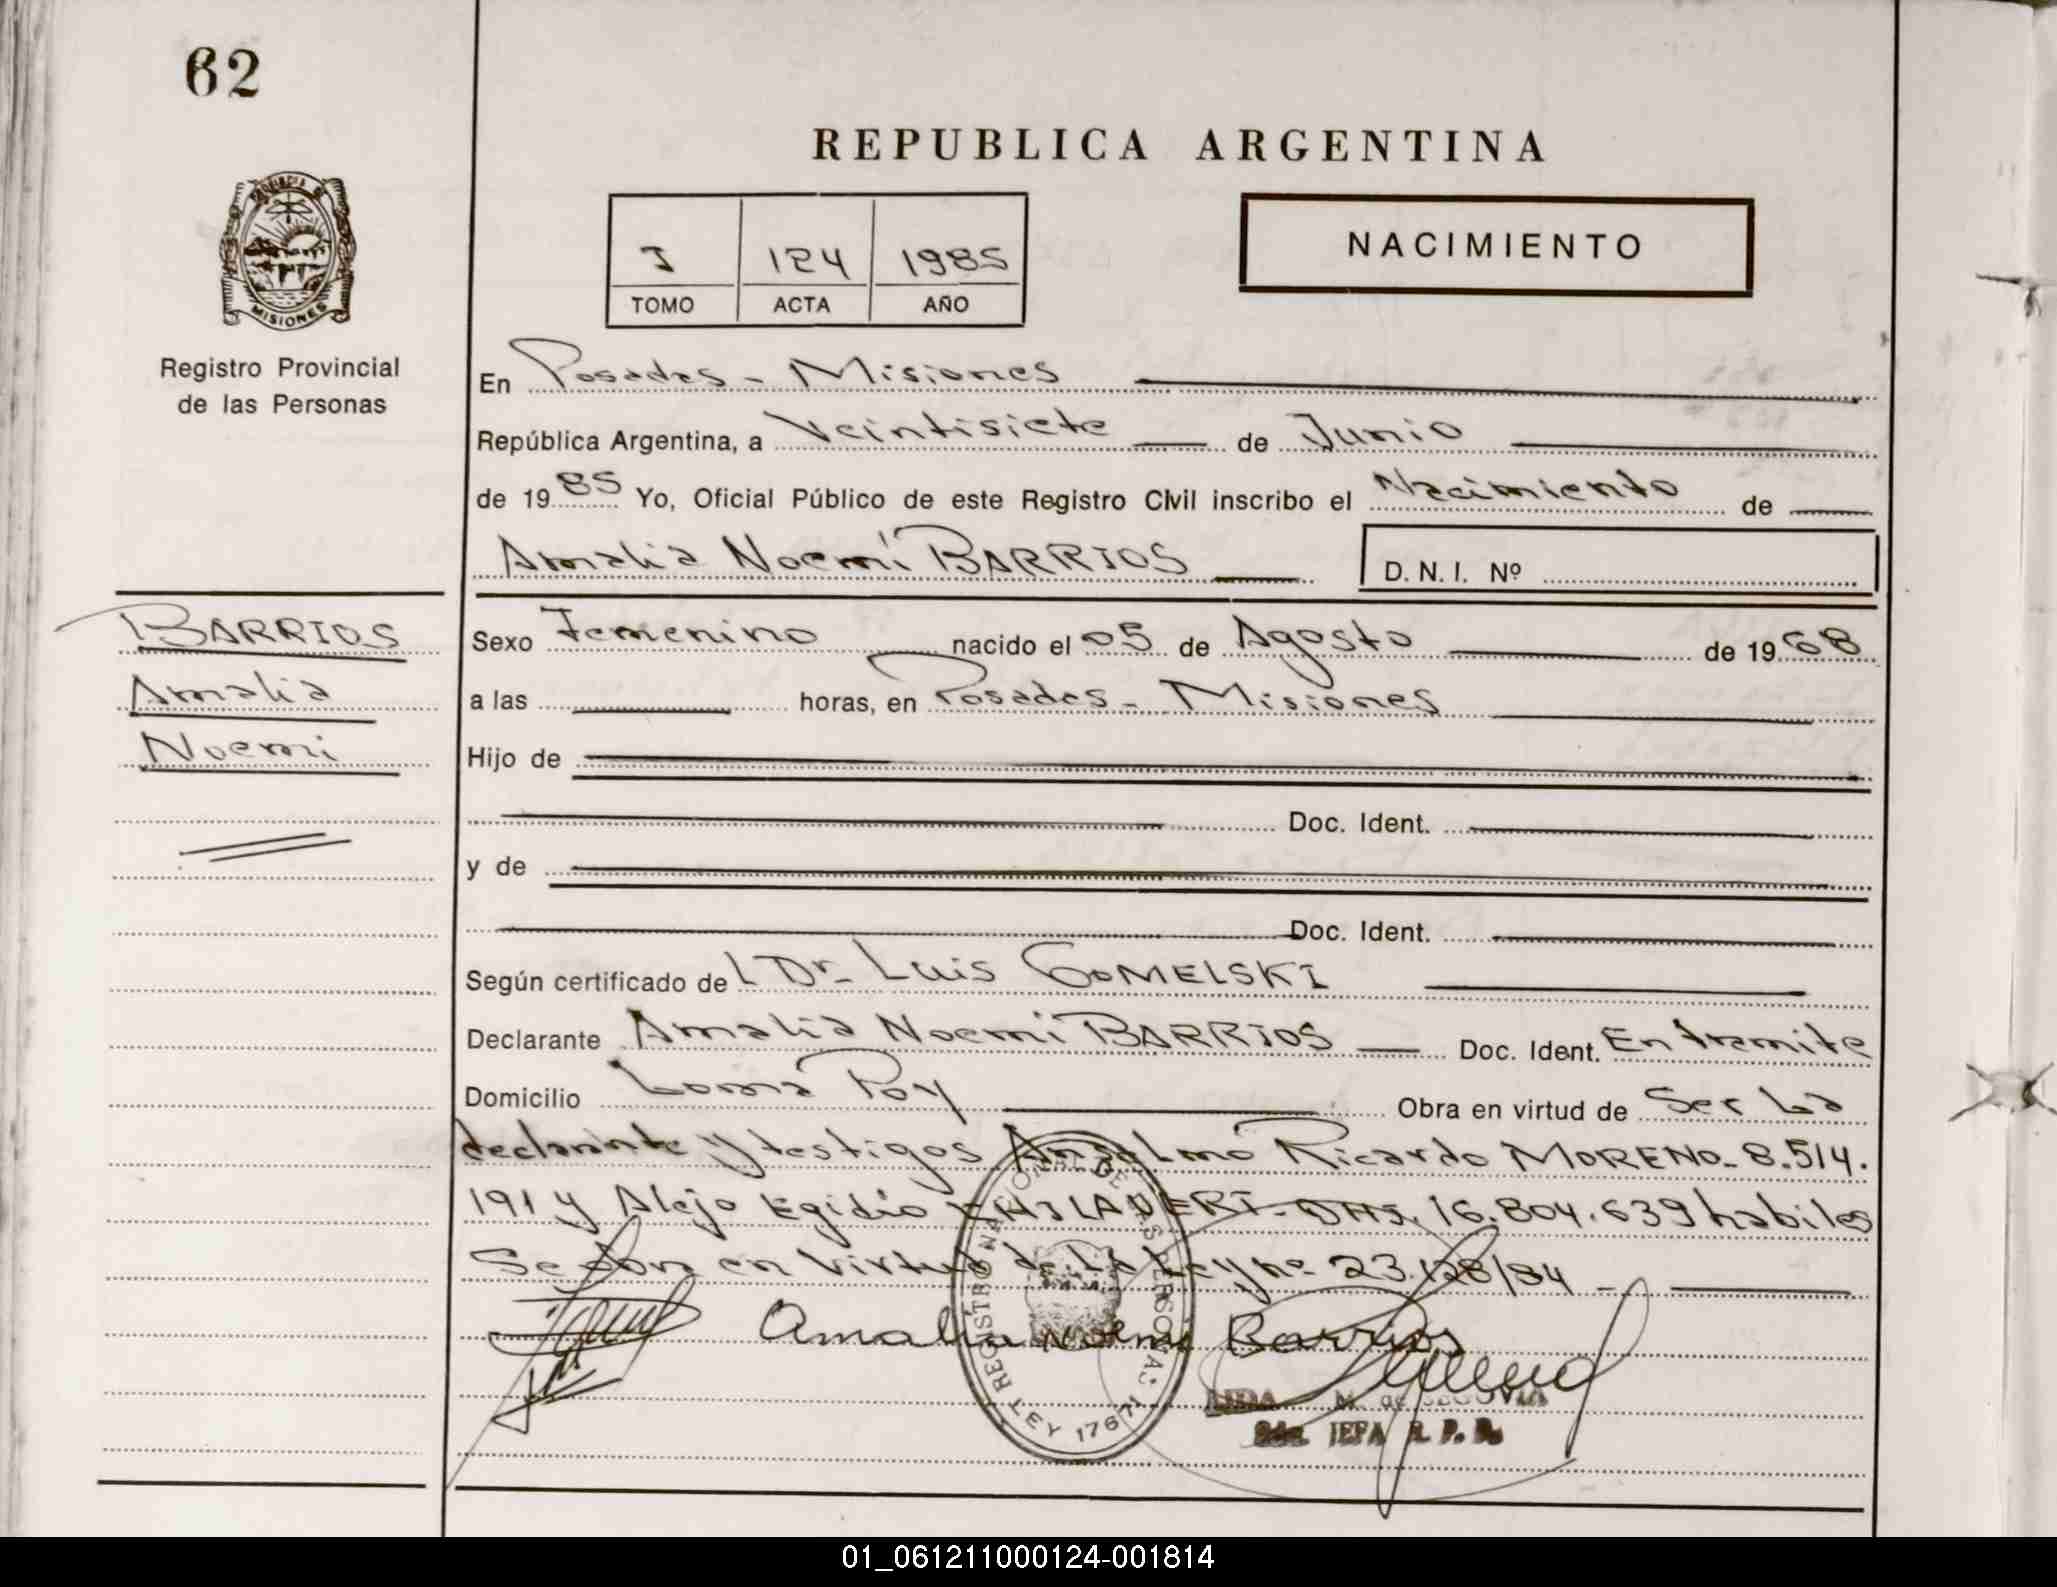 62
REPUBLICA ARGENTINA
PROVINCIA DE
MISIONES
Registro Provincial
de las Personas
I 124 1985
TOMO ACTA AÑO
NACIMIENTO
En Posadas - Misiones
República Argentina, a Veintisiete de Junio
de 1985 Yo, Oficial Público de este Registro Civil inscribo el Nacimiento de
Amalia Noemí BARRIOS D.N.I. Nº
BARRIOS
Amalia
Noemi
Sexo Femenino nacido el 05 de Agosto de 1968
a las horas, en Posadas - Misiones
Hijo de
Doc. Ident.
y de
Doc. Ident.
Según certificado del Dr. Luis GOMELSKI
Declarante Amalia Noemi BARRIOS Doc. Ident. En tramite
Domicilio Loma Poy Obra en virtud de Ser La
declarante y testigos Anselmo Ricardo MORENO - 8.514.
191 y Alejo Egidio 16.804.639 habiles
Se en virtud de La Ley nº 23.128/84 -
Amalia Noemi Barrios
REGISTRO NACIONAL DE LAS PERSONAS
LEY 17671
LIDA M. de
2da. JEFA R. P. P.
01_061211000124-001814